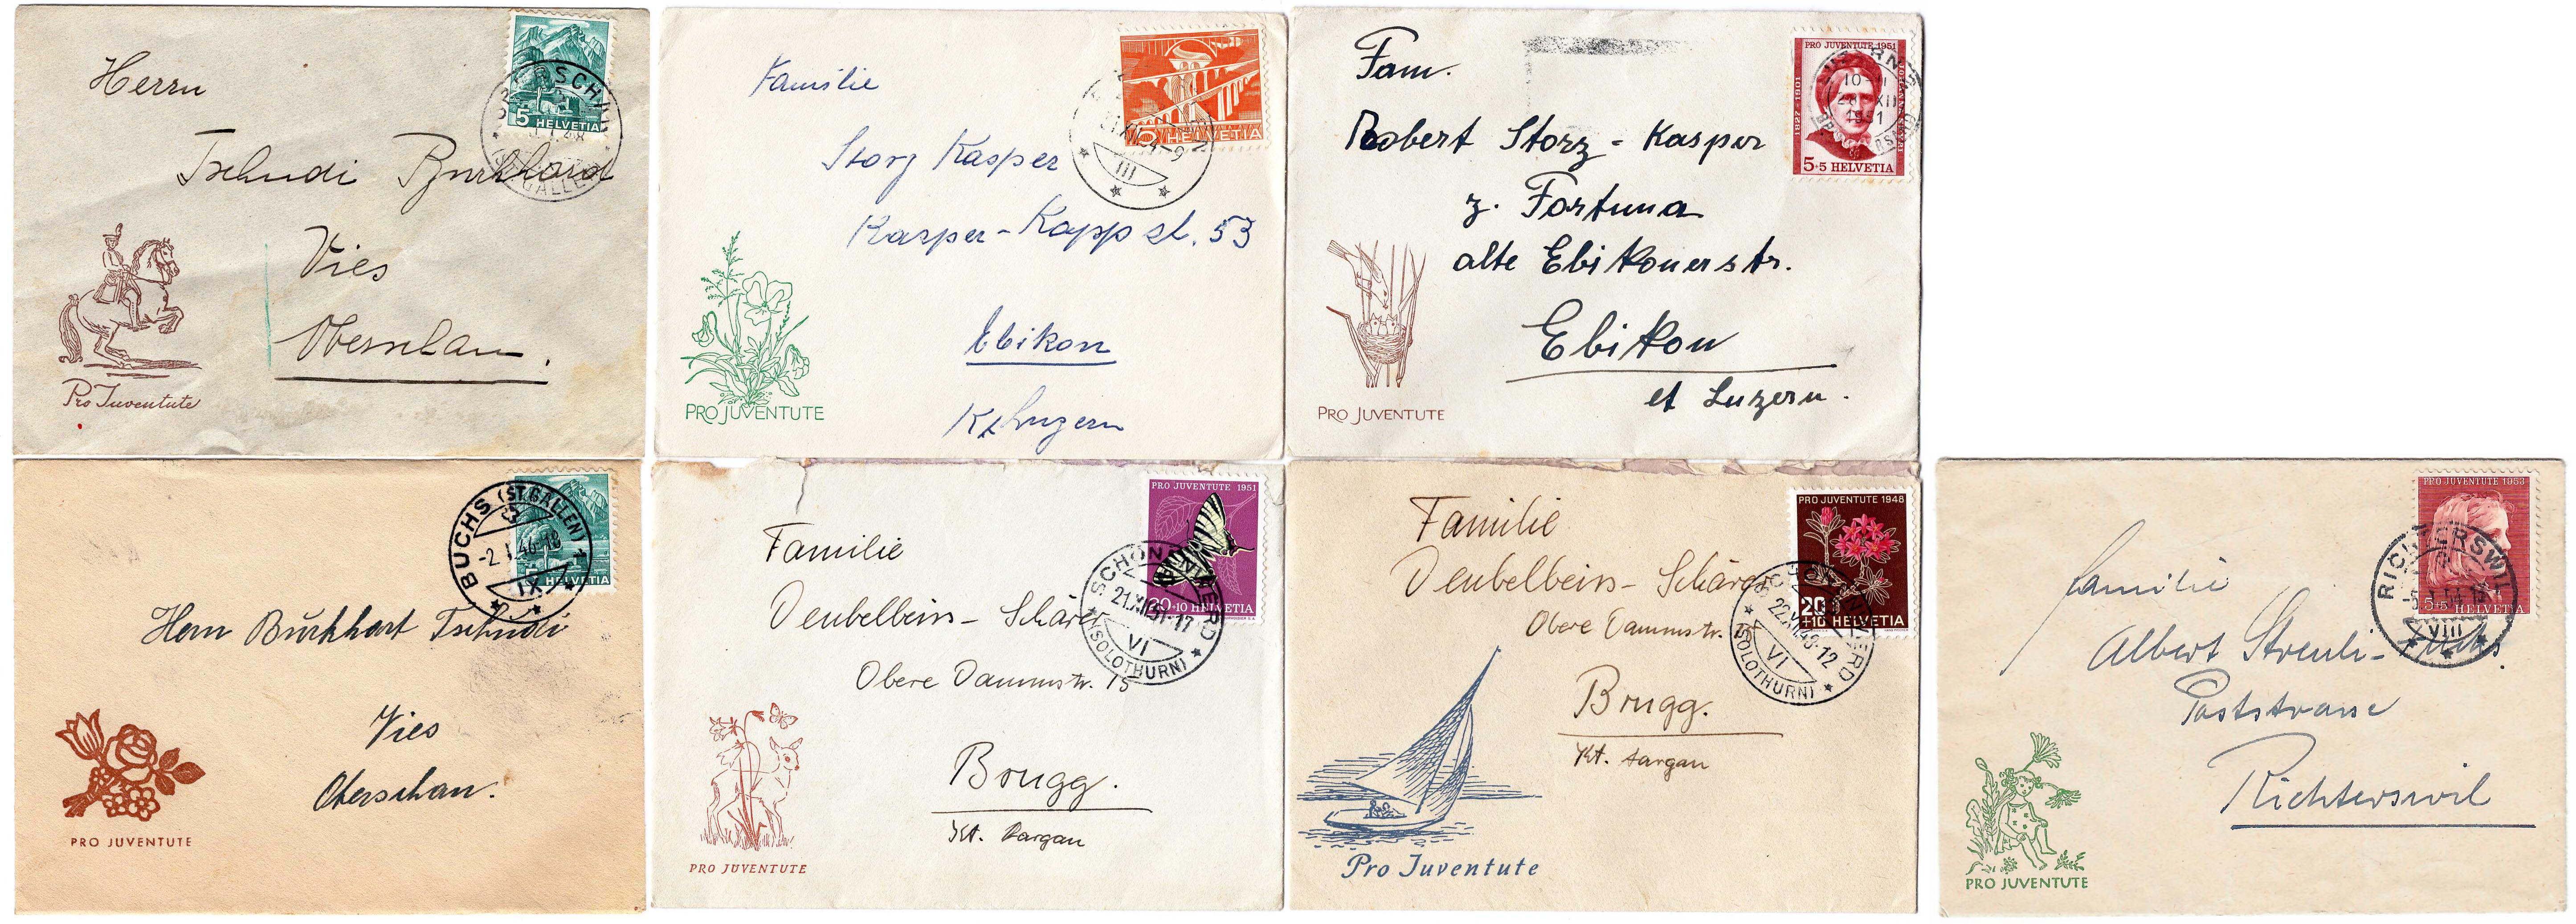 Herrn
Tschudi Burkhard
Vies
Oberschan.
Pro Juventute
5 HELVETIA
Familie
Storz Kasper
Kasper-Kopp st. 53
Ebikon
Kt Luzern
PRO JUVENTUTE
HELVETIA
III
Fam.
Robert Storz - Kasper
z. Fortuna
alte Ebikonerstr.
Ebikon
et Luzern.
PRO JUVENTUTE
PRO JUVENTUTE 1951
1827-1901
5+5 HELVETIA
10-11
XII
1951
BUCHS (ST. GALLEN)
-2.I.46-18
IX
HELVETIA
Herrn Burkhart Tschudi
Vies
Oberschan.
PRO JUVENTUTE
PRO JUVENTUTE 1951
20+10 HELVETIA
SCHÖNENWERD
21.XII.51-17
VI
(SOLOTHURN)
Familie
Deubelbeiss - Schärer
Obere Dammstr. 15
Brugg.
Kt. Aargau
PRO JUVENTUTE
PRO JUVENTUTE 1948
20+10 HELVETIA
SCHÖNENWERD
22.XII.48-12
VI
(SOLOTHURN)
Familie
Deubelbeiss - Schärer
Obere Dammstr. 15
Brugg.
Kt. Aargau
Pro Juventute
PRO JUVENTUTE 1953
5+5 HELVETIA
RICHTERSWIL
VIII
Familie
Albert Streuli-
Poststrasse
Richterswil
PRO JUVENTUTE